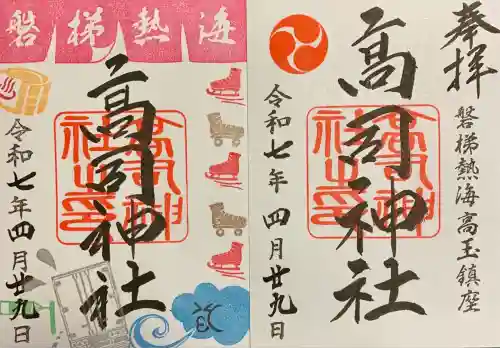 磐梯熱海
高司神社
令和七年四月廿九日
奉拝
磐梯熱海高玉鎮座
高司神社
令和七年四月廿九日